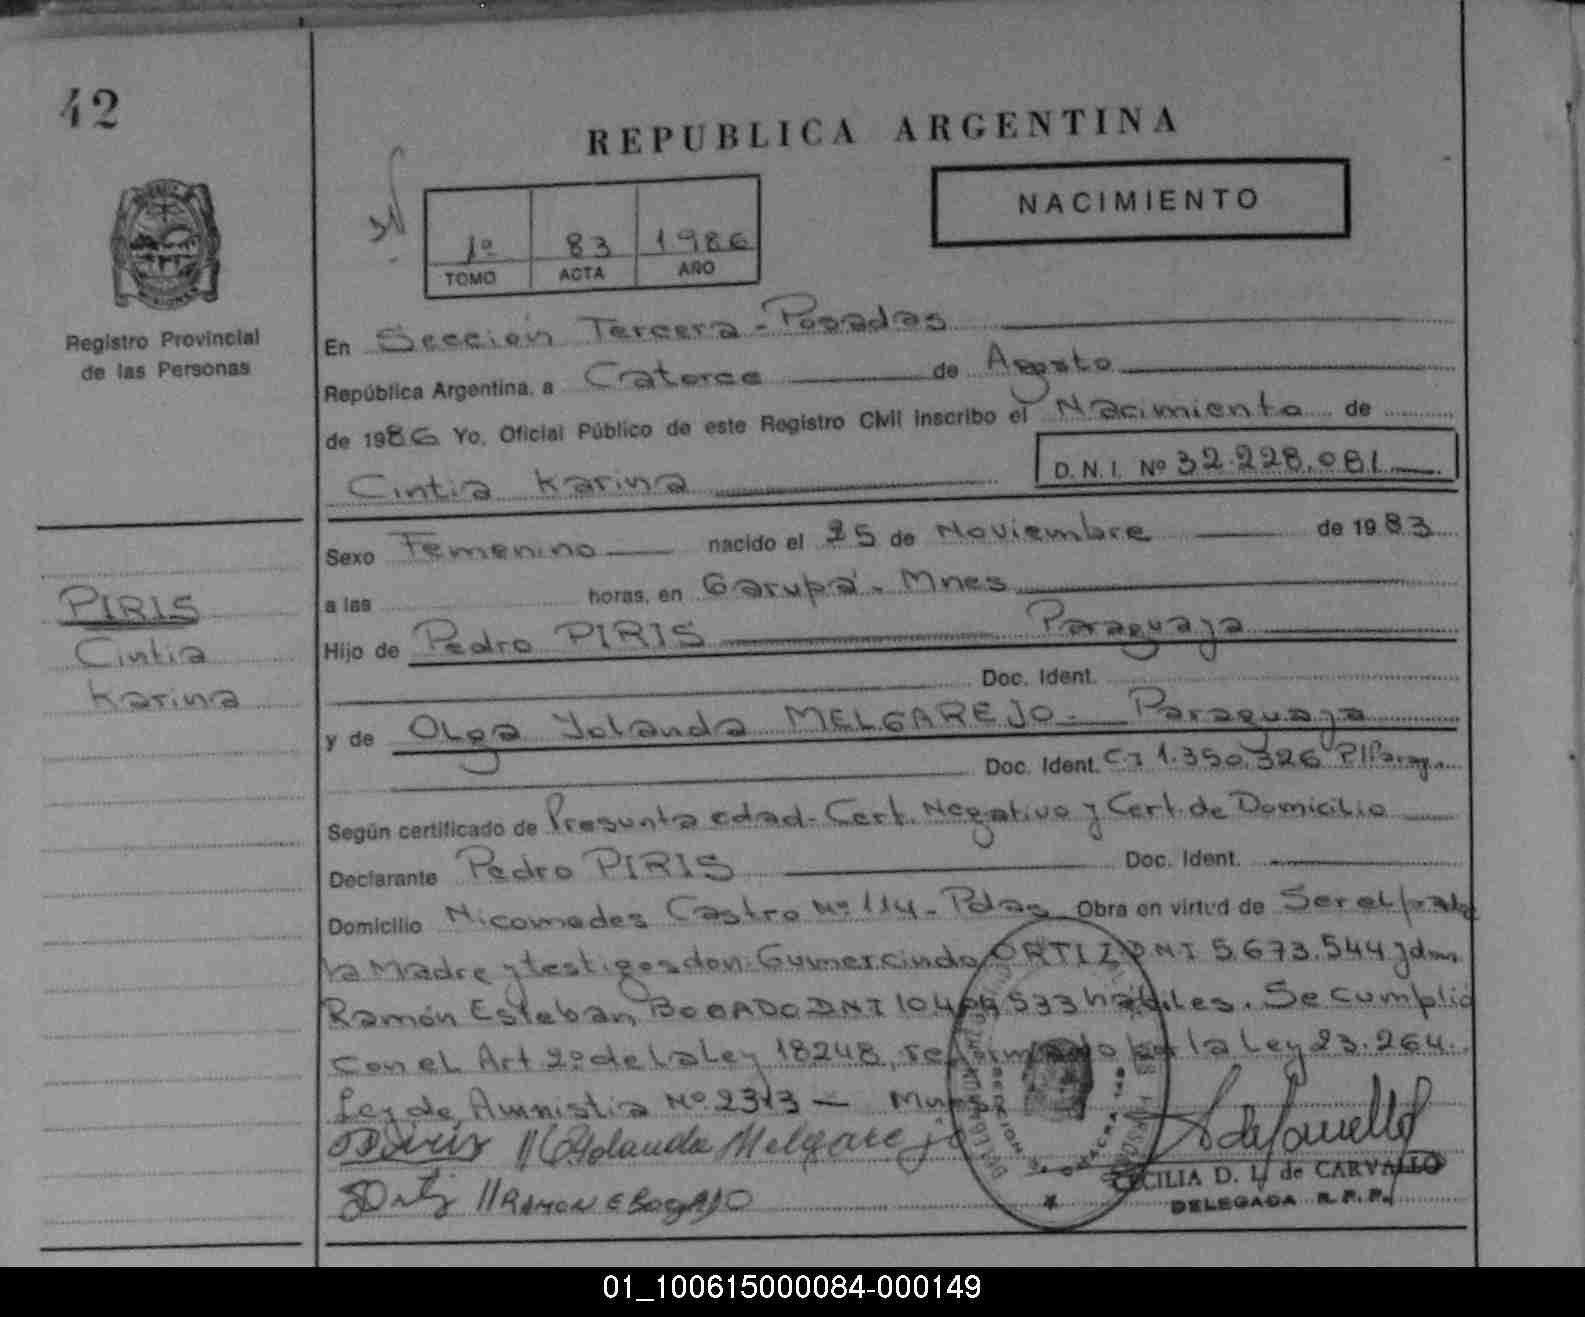 42
REPUBLICA ARGENTINA
NACIMIENTO
1º 83 1.986
TOMO ACTA AÑO
Registro Provincial
de las Personas
En Sección Tercera - Posadas
República Argentina, a Catorce de Agosto
de 1986 Yo, Oficial Público de este Registro Civil inscribo el Nacimiento de
Cintia Karina D.N.I. Nº 32.228.081
Sexo Femenino nacido el 25 de Noviembre de 1983
a las horas, en Garupá - Mnes
Hijo de Pedro PIRIS Paraguaja
Doc. Ident.
y de Olga Yolanda MELGAREJO - Paraguaja
Doc. Ident. C.I 1.350.326 P/Parag.
Según certificado de Presunta edad - Cert. Negativo y Cert. de Domicilio
Declarante Pedro PIRIS Doc. Ident.
Domicilio Nicomedes Castro Nº 114 - Pdas Obra en virtud de Ser el padre
la Madre y testigos don: Gumercindo ORTIZ DNI 5.673.544 y don
Ramón Esteban BOGADO DNI 10.499.533 hábiles. Se cumplió
con el Art 2º de la Ley 18248, reformado por la Ley 23.264.
Ley de Amnistia Nº 2313 - Mnes
PIRIS
Cintia
Karina
Piris // Yolanda Melgarejo
Ortiz // RAMON E BOGADO
CECILIA D. L. de CARVALLO
DELEGADA R. P. P.
01_100615000084-000149